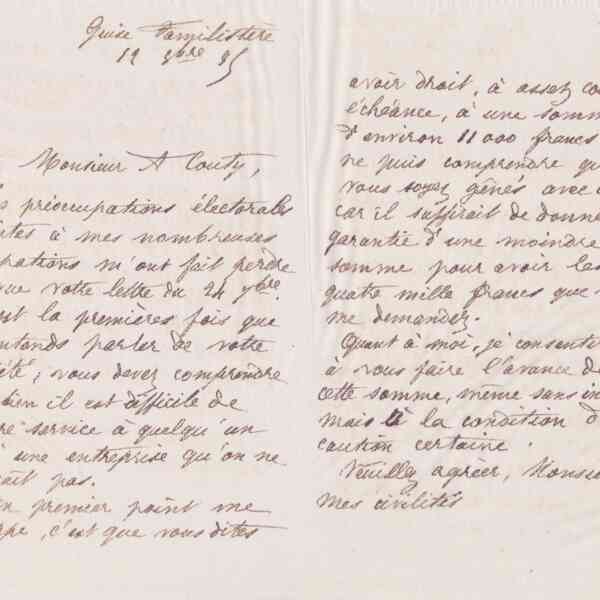 Guise Familistère
12 9bre 85
Monsieur A Couty,
s préoccupations électorales
ntes à mes nombreuses
pations m'ont fait perdre
que votre lettre du 24 7bre.
est la premières fois que
entends parler de votre
iété, vous devez comprendre
bien il est difficile de
re service à quelqu'un
à une entreprise qu'on ne
ait pas.
n premier point me
ppe, c'est que vous dites
avoir droit, à assez cou
échéance, à une somm
d'environ 11 000 francs
ne puis comprendre qu
vous soyez gênés avec
car il suffirait de donne
garantie d'une moindre
somme pour avoir les
quatre mille francs que
me demandez.
Quant à moi, je consenti
à vous faire l'avance de
cette somme, même sans in
mais à la condition d
caution certaine.
Veuillez agréer, Monsie
mes civilités